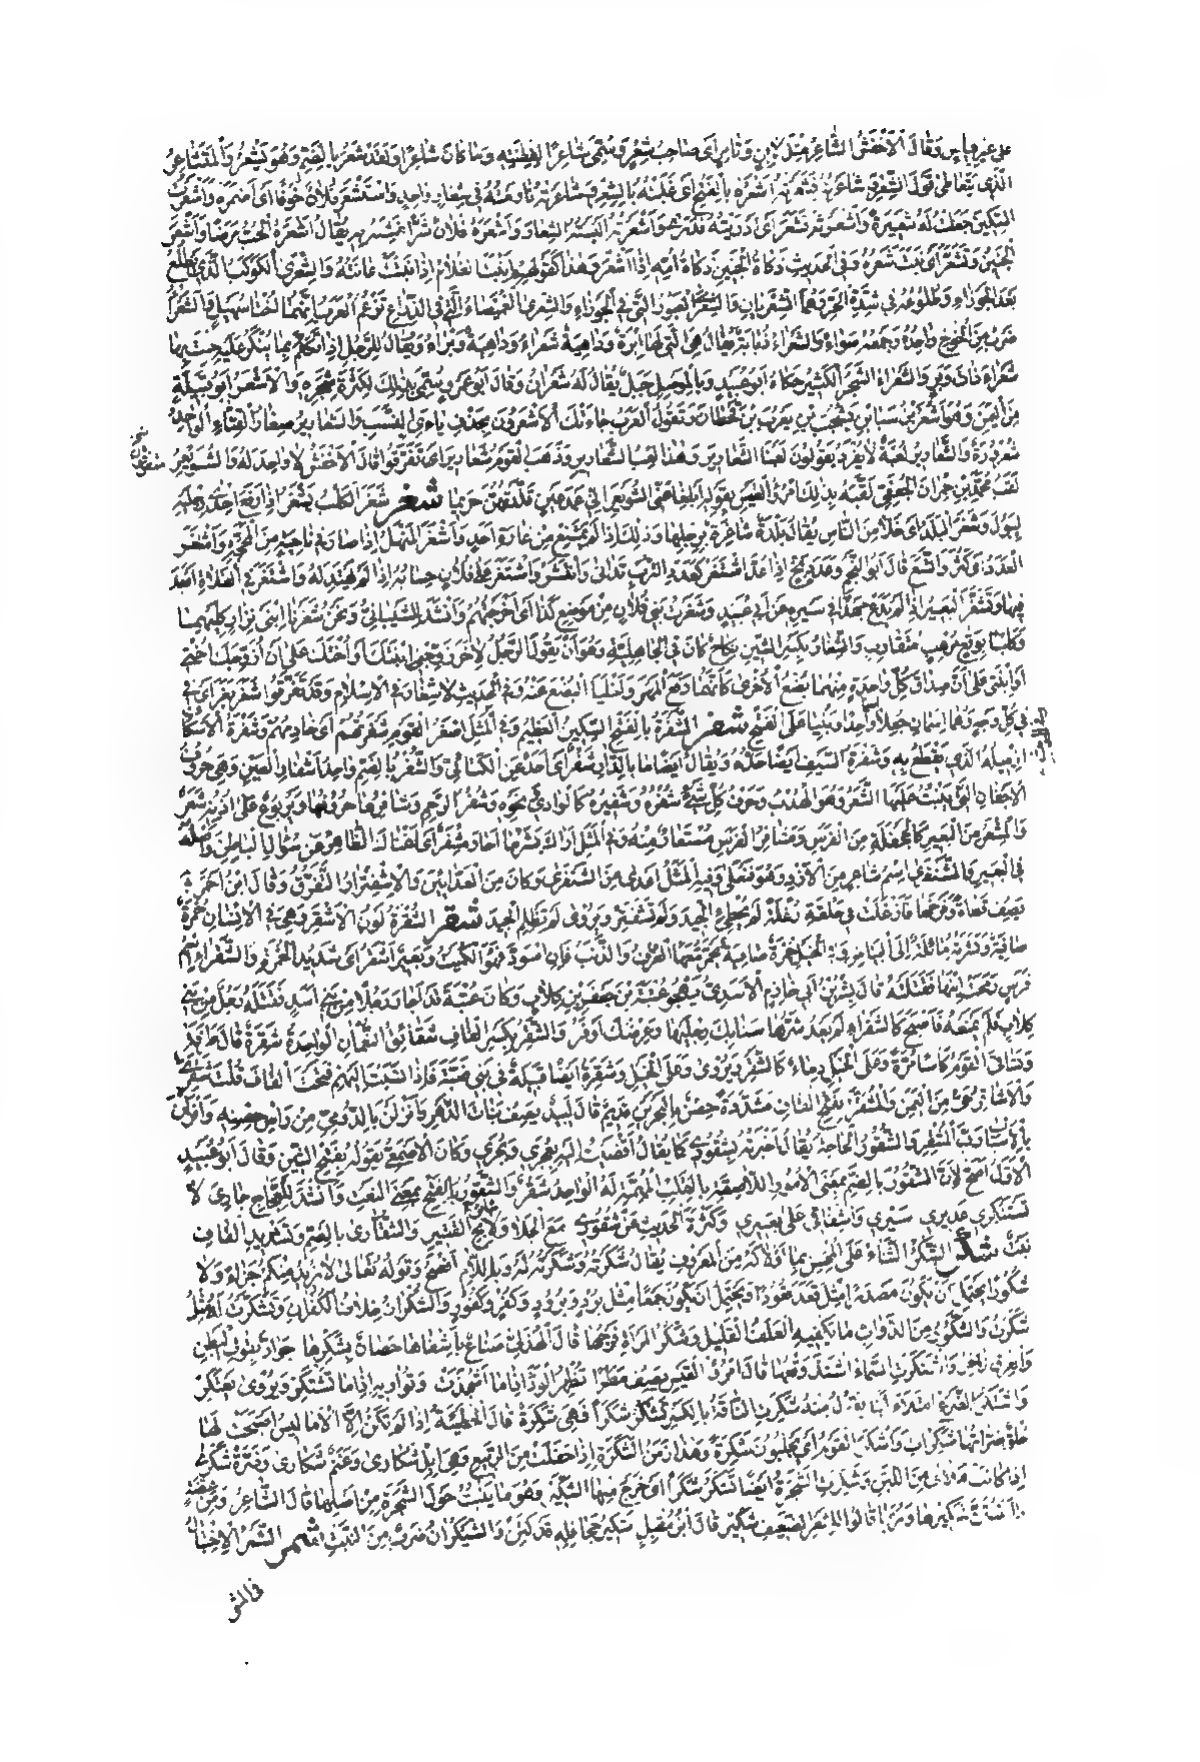 على غير قياس وقال الأخفش الشاعر مثل لابن وتامر أى صاحب شعر وسمى شاعرا لفطنته وما كان شاعرا ولقد شعر بالضم وهو يشعر والمتشاعر
الذى يتعاطى قول الشعر شاعرته فشعرته اشعره بالفتح أى غلبته بالشعر وشاعرته ناومته فى شعار واحد واستشعر فلان خوفا اى أضمره وأشعرت
السكين جعلت له شعيرة وأشعرته فشعر أى أدريته فدرى وأشعرته ألبسته الشعار وأشعره فلان شرا غشيه به يقال أشعره الحب مرضا وأشعر
الجنين وتشعر أى نبت شعره وفى الحديث ذكاة الجنين ذكاة أمه إذا أشعر وهذا كقولهم أنبت الغلام اذا نبتت عانته والشعرى الكوكب الذى يطلع
بعد الجوزاء وطلوعه فى شدة الحر وهما الشعريان الشعرى العبور التى فى الجوزاء والشعرى الغميصاء التى فى الذراع تزعم العرب انهما أختا سهيل والشعراء
ضرب من الخوخ واحده وجمعه سواء والشعراء ذبابة يقال هى التى لها ابرة وداهية شعراء وداهية وبراء ويقال للرجل إذا تكلم بما ينكر عليه جئت بها
شعراء ذات وبر والشعراء الشجر الكثير حكاه ابو عبيد وبالموصل جبل يقال له شعران وقال أبو عمرو سمى بذلك لكثرة شجره والأشعر أبو قبيلة
من اليمن وهو أشعر بن سبا بن يشجب بن يعرب بن قحطان وتقول العرب جاءتك الأشعرون بحذف ياءى النسب والشعارير صغار القثاء الواحدة
شعرورة والشعارير لعبة لا يفرد يقولون لعبنا الشعارير وهذا لعب الشعارير وذهب القوم شعارير اى تفرقوا قال الأخفش لا واحد له والشويعر
لقب محمد بن حمران الجعفى لقبه بذلك امرؤ القيس بقوله ابلغا عنى الشويعر انى عمد عين قلدتهن حريما شغر شغر الكلب يشغر اذا رفع احدى رجليه
ليبول وشغر البلد اى خلا من الناس يقال بلدة شاغرة برجلها وذلك اذا لم تمتنع من غارة احد واشغر المنهل اذا صار فى ناحية من المحجة واشتغر
العدد اى كثر واتسع قال أبو النجم وعدد بخ اذا عد اشتغر كعدد الترب تدانى وانتشر واشتغر على فلان حسابه اذا لم يهتد له واشتغر فى الفلاة أبعد
فيها وتشغر البعير اذا لم يدع جهدا فى سيره عن أبى عبيد وشغرت بنى فلان من موضع كذا أى أخرجتهم وأنشد الشيبانى ونحن شغرنا ابنى نزار كليهما
وكلبا بوقع مرهب متقارب والشغار بكسر الشين نكاح كان فى الجاهلية وهو أن يقول الرجل لآخر زوجنى ابنتك أو أختك على أن أزوجك أختى
أو ابنتى على أن صداق كل واحدة منهما بضع الأخرى كأنهما رفعا المهر واخليا البضع عنه وفى الحديث لا شغار فى الاسلام وقد تفرقوا شغر بغر أى فى
كل وجه وهما اسمان جعلا واحدا وبنيا على الفتح شفر الشفرة بالفتح السكين العظيم وفى المثل أصغر القوم شفرتهم أى خادمهم وشفرة الاسكاف
ازميله الذى يقطع به وشفرة السيف ايضا حده ويقال ايضا ما بالدار شفر أى أحد عن الكسائى والشفر بالضم واحد اشفار العين وهى حروف
الأجفان التى ينبت عليها الشعر وهو الهدب وحرف كل شىء شفره وشفيره كالوادى ونحوه وشفر الرحم وشافرها حروفها ويربوع على اذنه شعر
والمشفر من البعير كالجحفلة من الفرس ومشافر الفرس مستعارة منه وفى المثل أراك بشر ما أحار مشفر أى أغناك الظاهر عن سؤال الباطن وأصله
فى البعير والشنفرى اسم شاعر من الأزد وهو فنعلى وفى المثل أعدى من الشنفرى وكان من العدائين والاشفترار التفرق وقال ابن أحمر
يصف قطاة وفرخها فأزغلت فى حلقه زغلة لم تخطئ الجيد ولم تشفتر ويروى لم تظلم الجيد شقر الشقرة لون الأشقر وهى فى الانسان حمرة
صافية وبشرته مائلة الى البياض وفى الخيل حمرة صافية يحمر معها العرف والذنب فان اسود فهو الكميت وبعير أشقر أى شديد الحمرة والشقراء اسم
فرس رمحت ابنها فقتلته قال بشر بن أبى خازم الأسدى يهجو عتبة بن جعفر بن كلاب وكان عتبة قد أجار رجلا من بنى أسد فقتله رجل من بنى
كلاب فلم يمنعه فأصبح كالشقراء لم يعد شرها سنابك رجليها وعرضك أوفر والشقر بكسر القاف شقائق النعمان الواحدة شقرة قال طرفة
وتساقى القوم كأسا مرة وعلى الخيل دماء كالشقر ويروى وعلا الخيل وشقرة ايضا قبيلة فى بنى ضبة فاذا نسبت اليهم فتحت القاف قلت شقرى
بالأسباب والشقور الحاجة يقال أخبرته بشقورى كما يقال أفضيت اليه بعجرى وبجرى وكان الأصمعى يقوله بفتح الشين وقال أبو عبيد
الأول أصح لأن الشقور بالضم بمعنى الأمور اللاصقة بالقلب المهمة له الواحد شقر والشقور بالفتح بمعنى النعت وأنشد للعجاج جارى لا
تستنكرى عذيرى سيرى واشفاقى على بعيرى وكثرة الحديث عن شقورى مع الجلا ولائح القتير والشقارى بالضم وتشديد القاف
نبت شكر الشكر الثناء على المحسن بما أولاكه من المعروف يقال شكرته وشكرت له وباللام أفصح وقوله تعالى لا نريد منكم جزاء ولا
شكورا يحتمل أن يكون مصدرا مثل قعد قعودا ويحتمل ان يكون جمعا مثل برد وبرود وكفر وكفور والشكران خلاف الكفران وتشكرت له مثل
شكرت والشكور من الدواب ما يكفيه العلف القليل وشكر المراة فرجها قال الهذلى صناع باشفاها حصان بشكرها جواد بقوت البطن
والعرق زاخر واشتكرت السماء اشتد وقعها قال امرؤ القيس يصف مطرا تظهر الود اذا ما أشجذت وتواريه اذا ما تشتكر ويروى تعتكر
واشتكر الضرع امتلاء لبنا يقال منه شكرت الناقة بالكسر تشكر شكرا فهى شكرة قال الحطيئة اذا لم تكن الا الأماليس أصبحت لها
حلق ضراتها شكرات وأشكر القوم أى يحلبون شكرة وهذا زمن الشكرة إذا حفلت من الربيع وهى ابل شكارى وغنم شكارى وضرة شكرى
اذا كانت ملأى من اللبن وشكرت الشجرة ايضا تشكر شكرا أى خرج منها الشكير وهو ما ينبت حول الشجرة من أصلها قال الشاعر ومن عضة
ما ينبتن شكيرها وربما قالوا للشعر الضعيف شكير قال ابن مقبل شكير جحافله قد كتن والشيكران ضرب من النبت شمر الشمر الاختيال
فى المشى